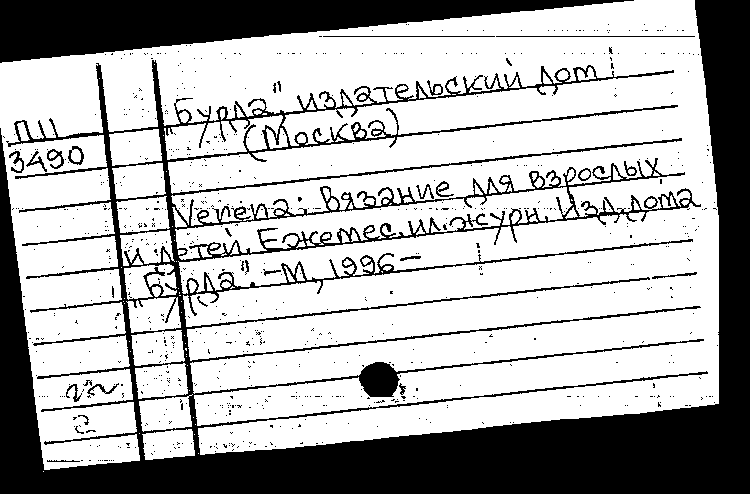 П11
3490
„Бурда", издательский дом
(Москва)
Verena: Вязание для взрослых
и детей. Ежемес. ил. журн. Изд. дома
„Бурда". -М, 1996-